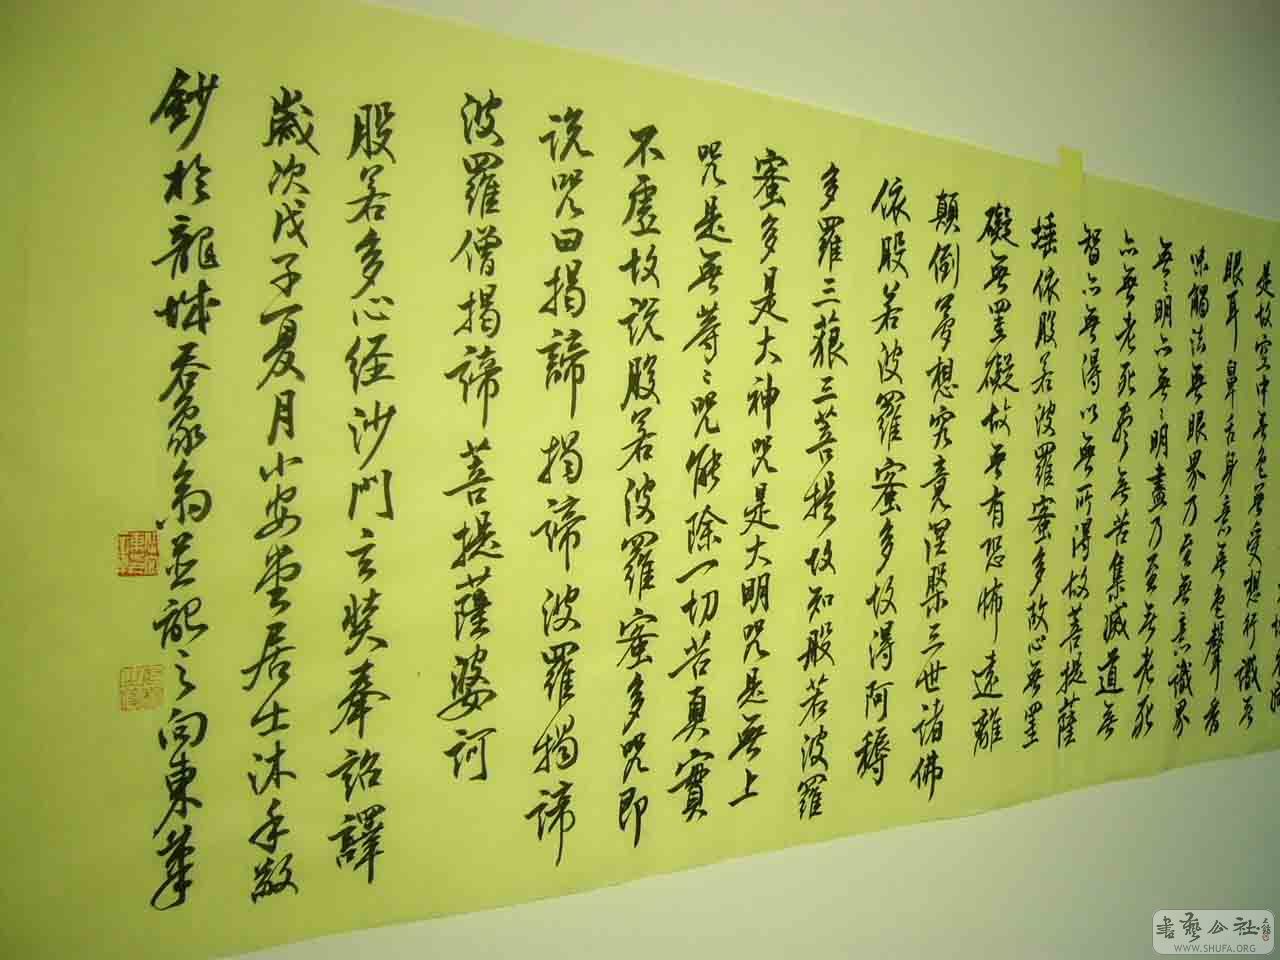 是故空中無色無受想行識無
眼耳鼻舌身意無色聲香
味觸法無眼界乃至無意識界
無〻明亦無〻明盡乃至無老死
亦無老死盡無苦集滅道無
智亦無得以無所得故菩提薩
埵依般若波羅蜜多故心無罣
礙無罣礙故無有恐怖遠離
顛倒夢想究竟涅槃三世諸佛
依般若波羅蜜多故得阿耨
多羅三藐三菩提故知般若波羅
蜜多是大神咒是大明咒是無上
咒是無等〻咒能除一切苦真實
不虛故説般若波羅蜜多咒即
说咒曰揭諦揭諦波羅揭諦
波羅僧揭諦菩提薩婆訶
般若多心经沙門玄奘奉詔譯
歲次戊子夏月小安堂居士沐手敬
鈔於龍城吞象翁並記之向東筆
書藝公社
WWW.SHUFA.ORG